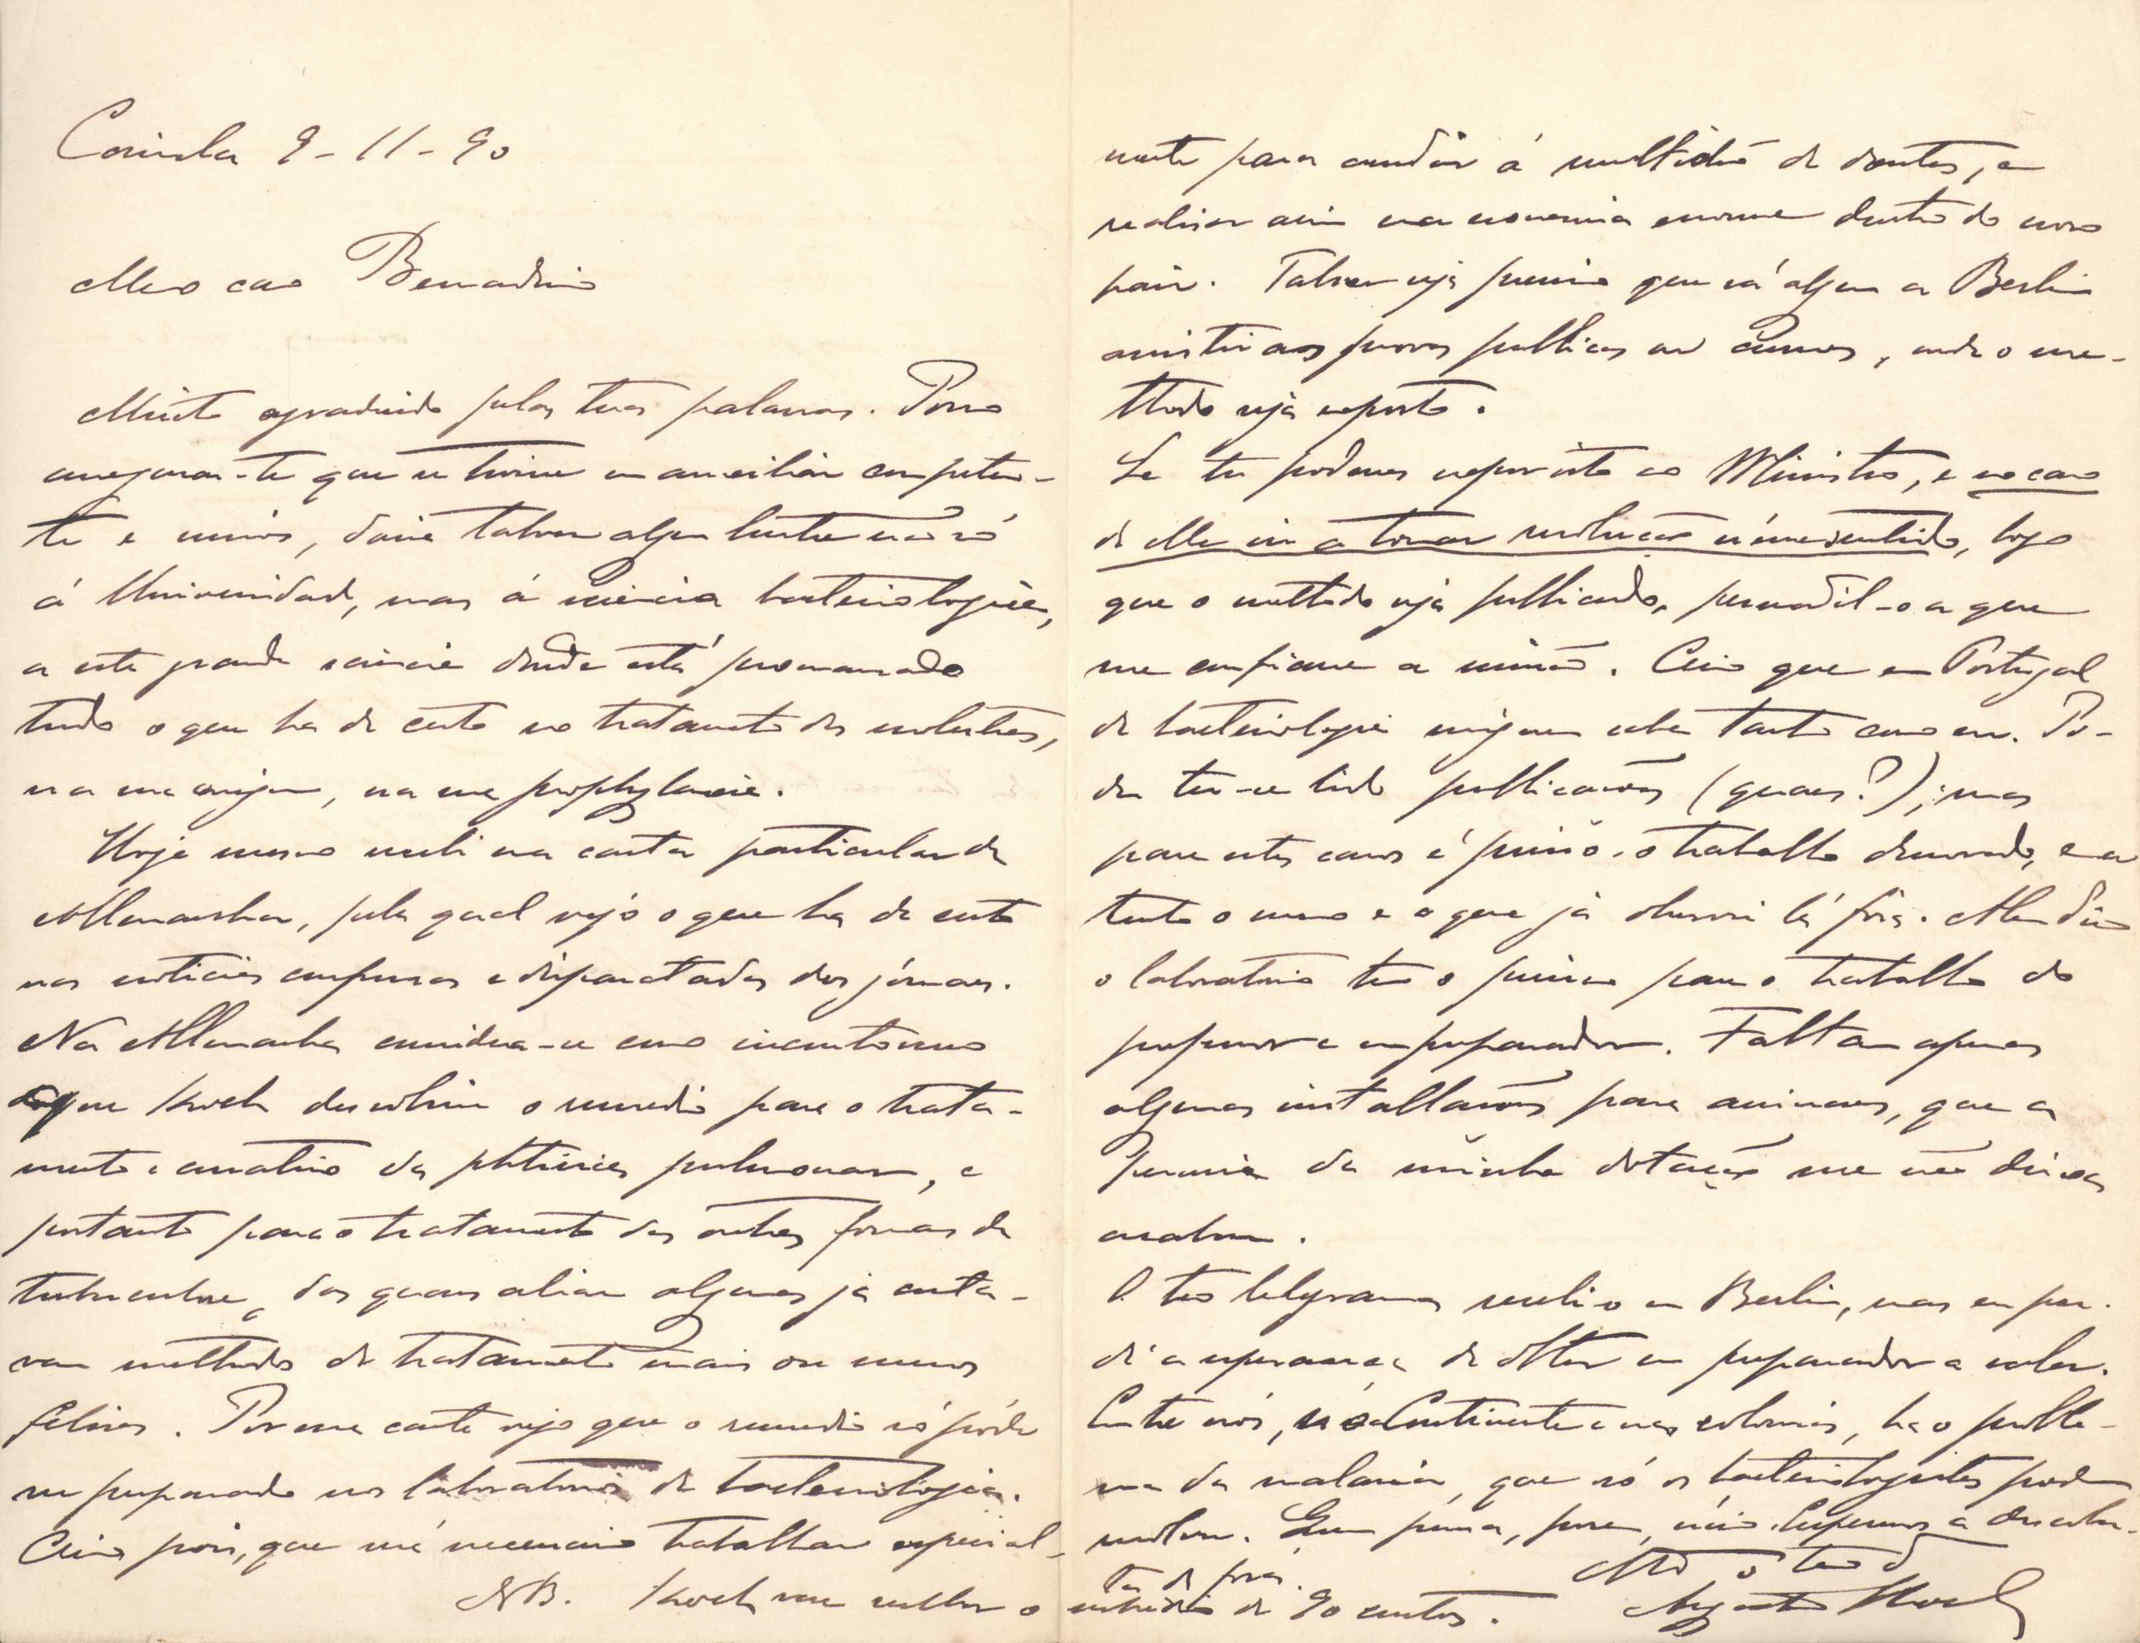 Coimbra 9-11-90
Meu caro Bernardino
Muito agradecido pelas tuas palavras. Posso
assegurar-te que se tivesse um auxiliar competen-
te e unico, daria talvez algum lustre não só
á Universidade, mas á sciencia bacteriologica,
a esta grande sciencia donde está promanando
tudo o que ha de certo no tratamento das molestias,
na sua origem, na sua prophylaxia.
Hoje mesmo recebi uma carta particular da
Allemanha, pela qual vejo o que ha de certo
nas noticias confusas e disparatadas dos jornaes.
Na Allemanha considera-se como incontroverso
que Koch descobriu o remedio para o trata-
mento curativo da phtisica pulmonar, e
portanto para o tratamento das outras formas de
tuberculose, das quaes aliás algumas já conta-
vam methodos de tratamento mais ou menos
felizes. Por essa carta vejo que o remedio só póde
ser preparado nos laboratorios de bacteriologia.
Creio pois, que será necessario trabalhar especial-
mente para acudir á multidão de doentes, e
realisar assim uma economia enorme dentro do nosso
paiz. Talvez seja preciso que vá alguem a Berlin
assistir ás provas publicas ou cursos, onde o me-
thodo seja exposto.
Se tu podesses expôr isto ao Ministro, e no caso
de elle vir a tomar resolução n'esse sentido, logo
que o methodo seja publicado, persuadil-o a que
me confiasse a missão. Creio que em Portugal
de bacteriologia ninguem sabe tanto como eu. Po-
dem ter-se lido publicações (quaes?); mas
para estes casos é preciso o trabalho demorado, e a
tento o meu e o que já observei lá fóra. Alem d'isso
o laboratorio tem o preciso para o trabalho do
professor e um preparador. Faltam apenas
algumas installações para animaes, que a
penuria da minha dotação me não deixa
acabar.
O teu telegramma recebi-o em Berlin, mas eu per-
di a esperança de obter um preparador a valer.
Entre nós, no Continente e nas colonias, ha o proble-
ma da malaria, que só os bacteriologistas podem
resolver. Quem pensa, porem, n'isso. Esperemos a descober-
ta de fóra.
Todo o teu
Augusto Rocha
NB. Koch vae receber o subsidio de 90 contos.